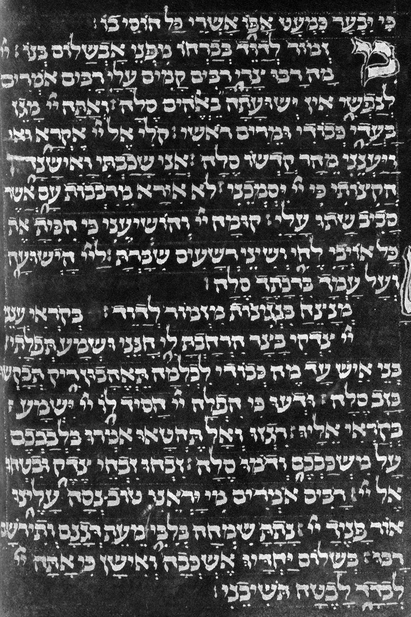 כי יבער כמעט אפו אשרי כל חוסי בו:
מזמור לדוד בברחו מפני אבשלום בנו: יי
מה רבו צרי רבים קמים עלי רבים אמרים
לנפשי אין ישועתה באלהים סלה: ואתה יי מגן
בעדי כבודי ומרים ראשי: קולי אל יי אקרא
ויענני מהר קדשו סלה: אני שכבתי ואישנה
הקיצותי כי יי יסמכני: לא אירא מרבבות עם אשר
סביב שתו עלי: קומה יי והושיעני כי הכית את
כל אויבי לחי ושיני רשעים שברת: ליי הישועה
ועל עמך ברכתך סלה:
מנצח בנגינות מזמור לדוד: בקראי ענני
יי צדקי בצר הרחבת לי חנני ושמע תפלתי
בני איש עד מה כבודי לכלמה תאהבון ריק תבקשו
כזב סלה: ודעו כי הפלה יי חסיד לו יי ישמע
בקראי אליו: רגזו ואל תחטאו אמרו בלבבכם
על משכבכם ודמו סלה: זבחו זבחי צדק ובטחו
אל יי: רבים אמרים מי יראנו טוב נסה עלינו
אור פניך יי: נתת שמחה בלבי מעת דגנם ותירשם
רבו: בשלום יחדיו אשכבה ואישן כי אתה יי
לבדד לבטח תשיבני: